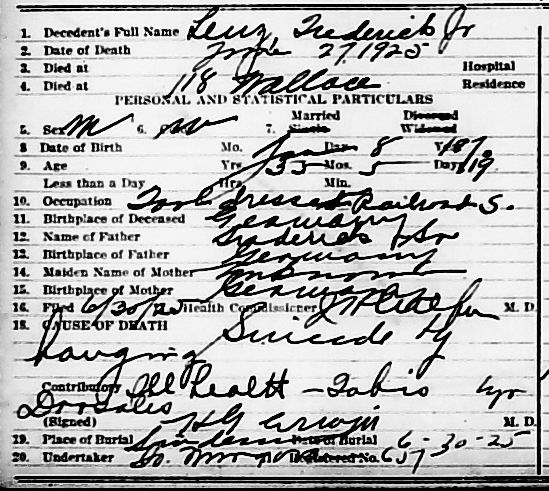 1. Decedent's Full Name Lenz, Frederick Jr
2. Date of Death June 27, 1925
3. Died at Hospital
4. Died at 118 Wallace Residence
PERSONAL AND STATISTICAL PARTICULARS
Married Divorced
5. Sex M 6. W 7. Single Widowed
8 Date of Birth Mo. Jan Day 8 Yr 187
9. Age Yrs 55 Mos. 5 Days 19
Less than a Day Hrs. Min.
10. Occupation Tool dresser Railroad S.
11. Birthplace of Deceased Germany
12. Name of Father Frederick Sr
13. Birthplace of Father Germany
14. Maiden Name of Mother unknown
15. Birthplace of Mother Germany
16. Filed 6/30/25 Health Commissioner M. D.
18. CAUSE OF DEATH Suicide by
hanging
Contributory Ill health - Tabis yr
Dorsales
(Signed) M. D.
19. Place of Burial Date of Burial 6-30-25
20. Undertaker Registered No. 657